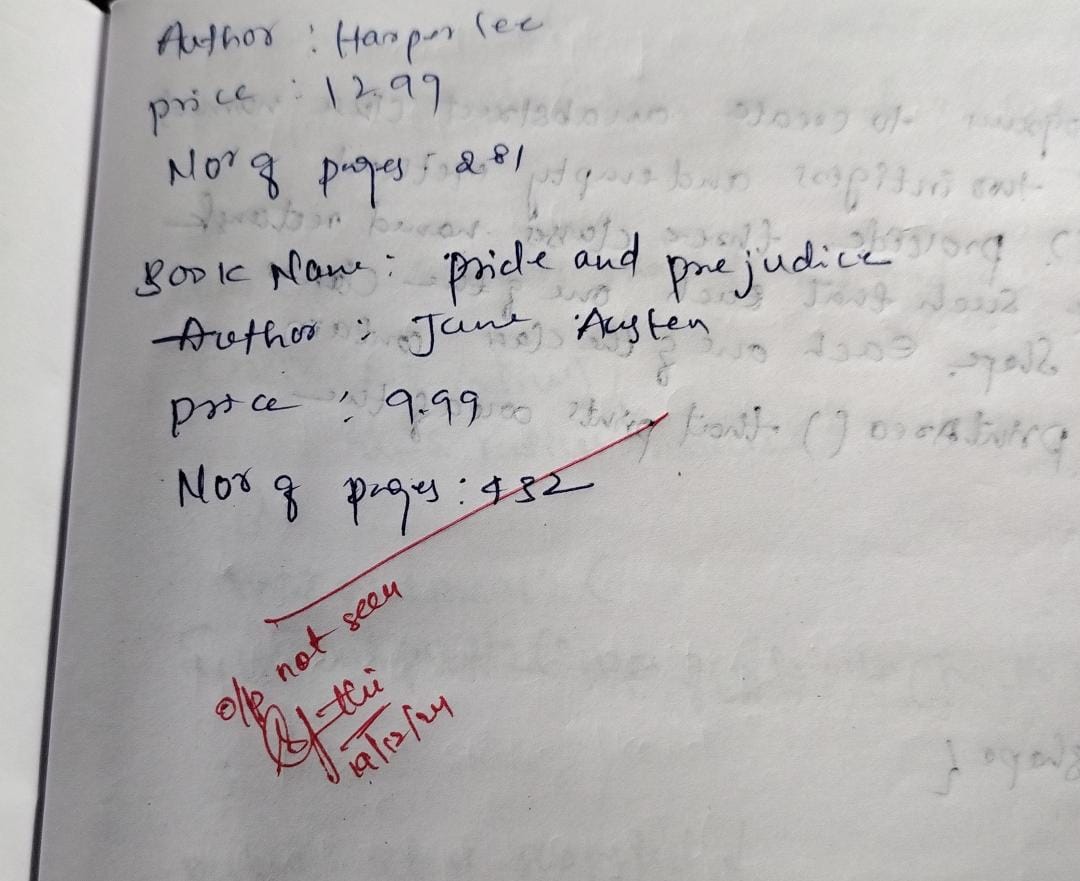 Author : Harper lee
price : 12.99
Nor of pages : 281
Book Name : pride and prejudice
Author : Jane Austen
price : 9.99
Nor of pages : 432
o/p not seen
19/12/24